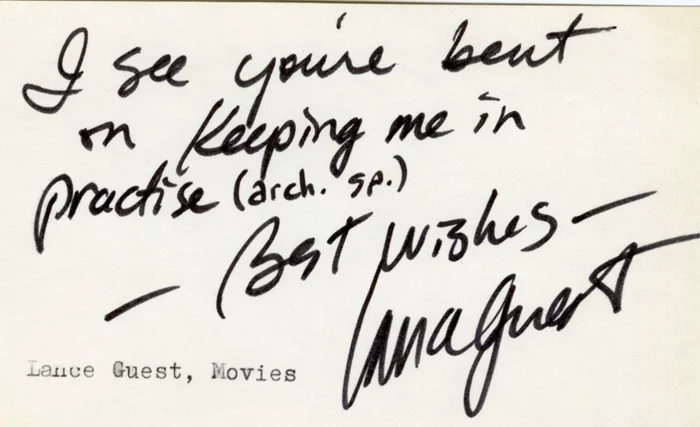 I see you're bent
on Keeping me in
practise (arch. sp.)
— Best Wishes —
Lance Guest
Lance Guest, Movies